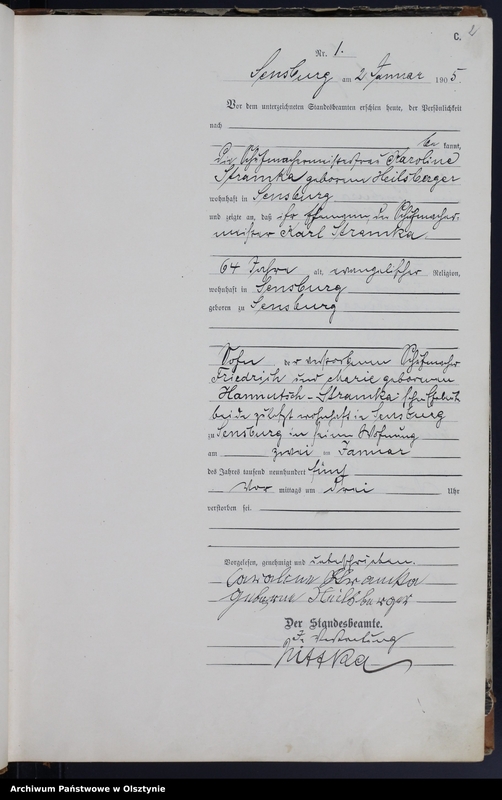 C. 2
Nr. 1.
Sensburg am 2 Januar 1905.
Vor dem unterzeichneten Standesbeamten erschien heute, der Persönlichkeit
nach
be kannt,
die Schuhmachermeisterfrau Karoline
Stramka geborene Heilsberger
wohnhaft in Sensburg
und zeigte an, daß ihr Ehemann, der Schuhmacher-
meister Karl Stramka
64 Jahre alt, evangelischer Religion,
wohnhaft in Sensburg
geboren zu Sensburg
Sohn der verstorbenen Schuhmacher
Friedrich und Marie geborenen
Stramka'schen Eheleute
beide zuletzt wohnhaft in Sensburg
zu Sensburg in seiner Wohnung
am zwei ten Januar
des Jahres tausend neunhundert fünf
Vor mittags um drei Uhr
verstorben sei.
Vorgelesen, genehmigt und unterschrieben.
Caroline Stramka
geborne Heilsberger
Der Standesbeamte.
In Vertretung
Archiwum Państwowe w Olsztynie